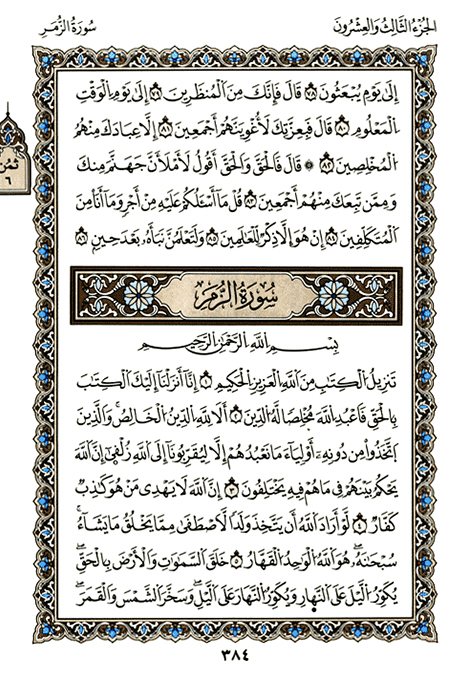 الجُزْءُ الثَّالِثُ وَالعِشْرُونَ
سُورَةُ الزُّمَرِ
إِلَىٰ يَوْمِ يُبْعَثُونَ ٧٨ قَالَ فَإِنَّكَ مِنَ اَلْمُنظَرِينَ ٧٩ إِلَىٰ يَوْمِ اِلْوَقْتِ
اِلْمَعْلُومِ ٨٠ قَالَ فَبِعِزَّتِكَ لَأُغْوِيَنَّهُمْ أَجْمَعِينَ ٨١ إِلَّا عِبَادَكَ مِنْهُمُ
اُلْمُخْلِصِينَ ٨٢ ۞ قَالَ فَالْحَقَّ وَالْحَقَّ أَقُولُ لَأَمْلَأَنَّ جَهَنَّمَ مِنكَ
وَمِمَّن تَبِعَكَ مِنْهُمْ أَجْمَعِينَ ٨٣ قُلْ مَا أَسْـَٔلُكُمْ عَلَيْهِ مِنْ أَجْرٍ وَمَا أَنَا مِنَ
اَلْمُتَكَلِّفِينَ ٨٤ إِنْ هُوَ إِلَّا ذِكْرٌ لِّلْعَٰلَمِينَ ٨٥ وَلَتَعْلَمُنَّ نَبَأَهُۥ بَعْدَ حِينٍ ٨٦
ثُمُن
٦
سُورَةُ الزُّمَرِ
بِسْمِ اللَّهِ الرَّحْمَٰنِ الرَّحِيمِ
تَنزِيلُ الْكِتَٰبِ مِنَ اَللَّهِ اِلْعَزِيزِ اِلْحَكِيمِ ١ إِنَّا أَنزَلْنَا إِلَيْكَ اَلْكِتَٰبَ
بِالْحَقِّ فَاعْبُدِ اِللَّهَ مُخْلِصًا لَّهُ اُلدِّينَ ٢ أَلَا لِلَّهِ اِلدِّينُ اُلْخَالِصُ وَالَّذِينَ
اَتَّخَذُواْ مِن دُونِهِۦ أَوْلِيَاءَ مَا نَعْبُدُهُمْ إِلَّا لِيُقَرِّبُونَا إِلَى اَللَّهِ زُلْفَىٰ إِنَّ اَللَّهَ
يَحْكُمُ بَيْنَهُمْ فِي مَا هُمْ فِيهِ يَخْتَلِفُونَ ٣ إِنَّ اَللَّهَ لَا يَهْدِي مَنْ هُوَ كَٰذِبٌ
كَفَّارٌ ٤ لَّوْ أَرَادَ اَللَّهُ أَن يَتَّخِذَ وَلَدًا لَّاصْطَفَىٰ مِمَّا يَخْلُقُ مَا يَشَاءُ
سُبْحَٰنَهُۥ هُوَ اَللَّهُ اُلْوَٰحِدُ اُلْقَهَّارُ ٥ خَلَقَ اَلسَّمَٰوَٰتِ وَالْأَرْضَ بِالْحَقِّ
يُكَوِّرُ اُلَّيْلَ عَلَى اَلنَّهَارِ وَيُكَوِّرُ اُلنَّهَارَ عَلَى اَلَّيْلِ وَسَخَّرَ اَلشَّمْسَ وَالْقَمَرَ
٣٨٤